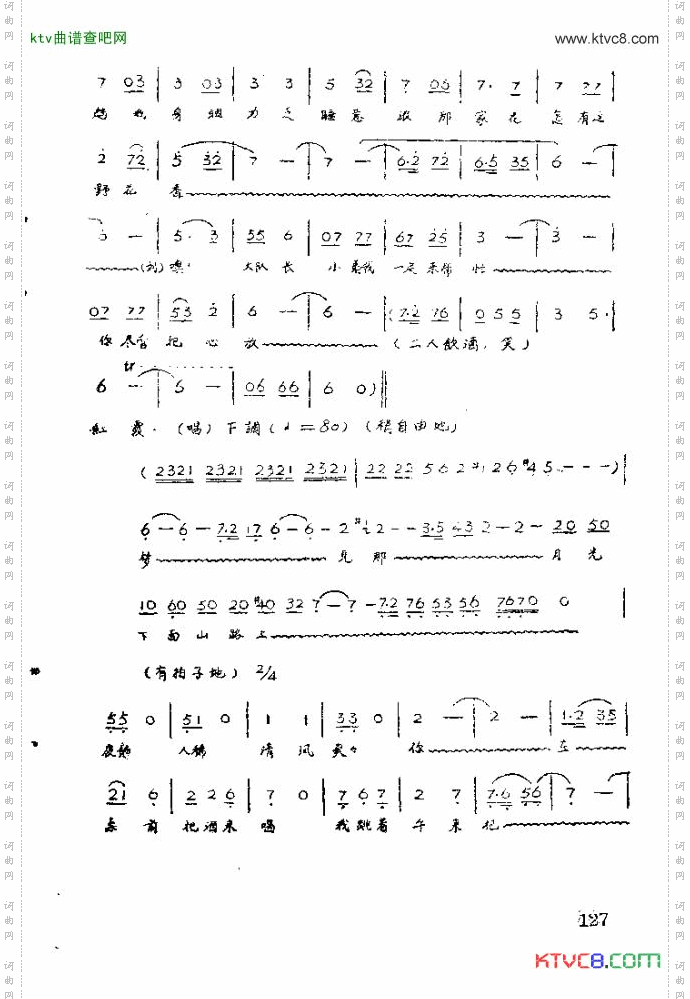 ktv曲谱查吧网 www.ktvc8.com
7 03 | 3 03 | 3 3 | 5 32 | 7 05 | 7· 7 | 7 77
身 力 家花 怎有
2 72 | 5 32 | 7 — | 7 — | 6·2 72 | 6·5 35 | 6 — |
野花 香
— | 5· 3 | 55 6 | 07 77 | 67 25 | 3 — | 3 — |
大队长 小 我 一定来帮忙
07 77 | 53 2 | 6 — | 6 — | (7·2 76 | 0 55 | 3 5·
你尽管 把 心 放 (二人飲酒,笑)
6 — | 6 — | 06 66 | 6 0) ||
紅 霞·(唱)下調(♩=80)(稍自由地)
(2321 2321 2321 2321 | 22 22 5 6 2 #1 2 6 #4 5 - - -) |
6 — 6 — 7·2 17 6 — 6 — 2 #1 2 — — 3·5 43 2 — 2 — 20 50
梦 見 那 月光
10 60 50 20 #40 32 7 — 7 — 7·2 76 53 56 7670 0 |
下面山路上
(有拍子地) 2/4
55 0 | 51 0 | 1 1 | 33 0 | 2 — | 2 — | 1·2 35 |
夜静 人稀 清風 爽々 你 在
21 6 | 2 2 6 | 7 0 | 7 6 7 | 2 7 | 7·6 56 | 7 — |
前 把酒来 喝 我跳着 来
127
KTVC8.COM
词曲网